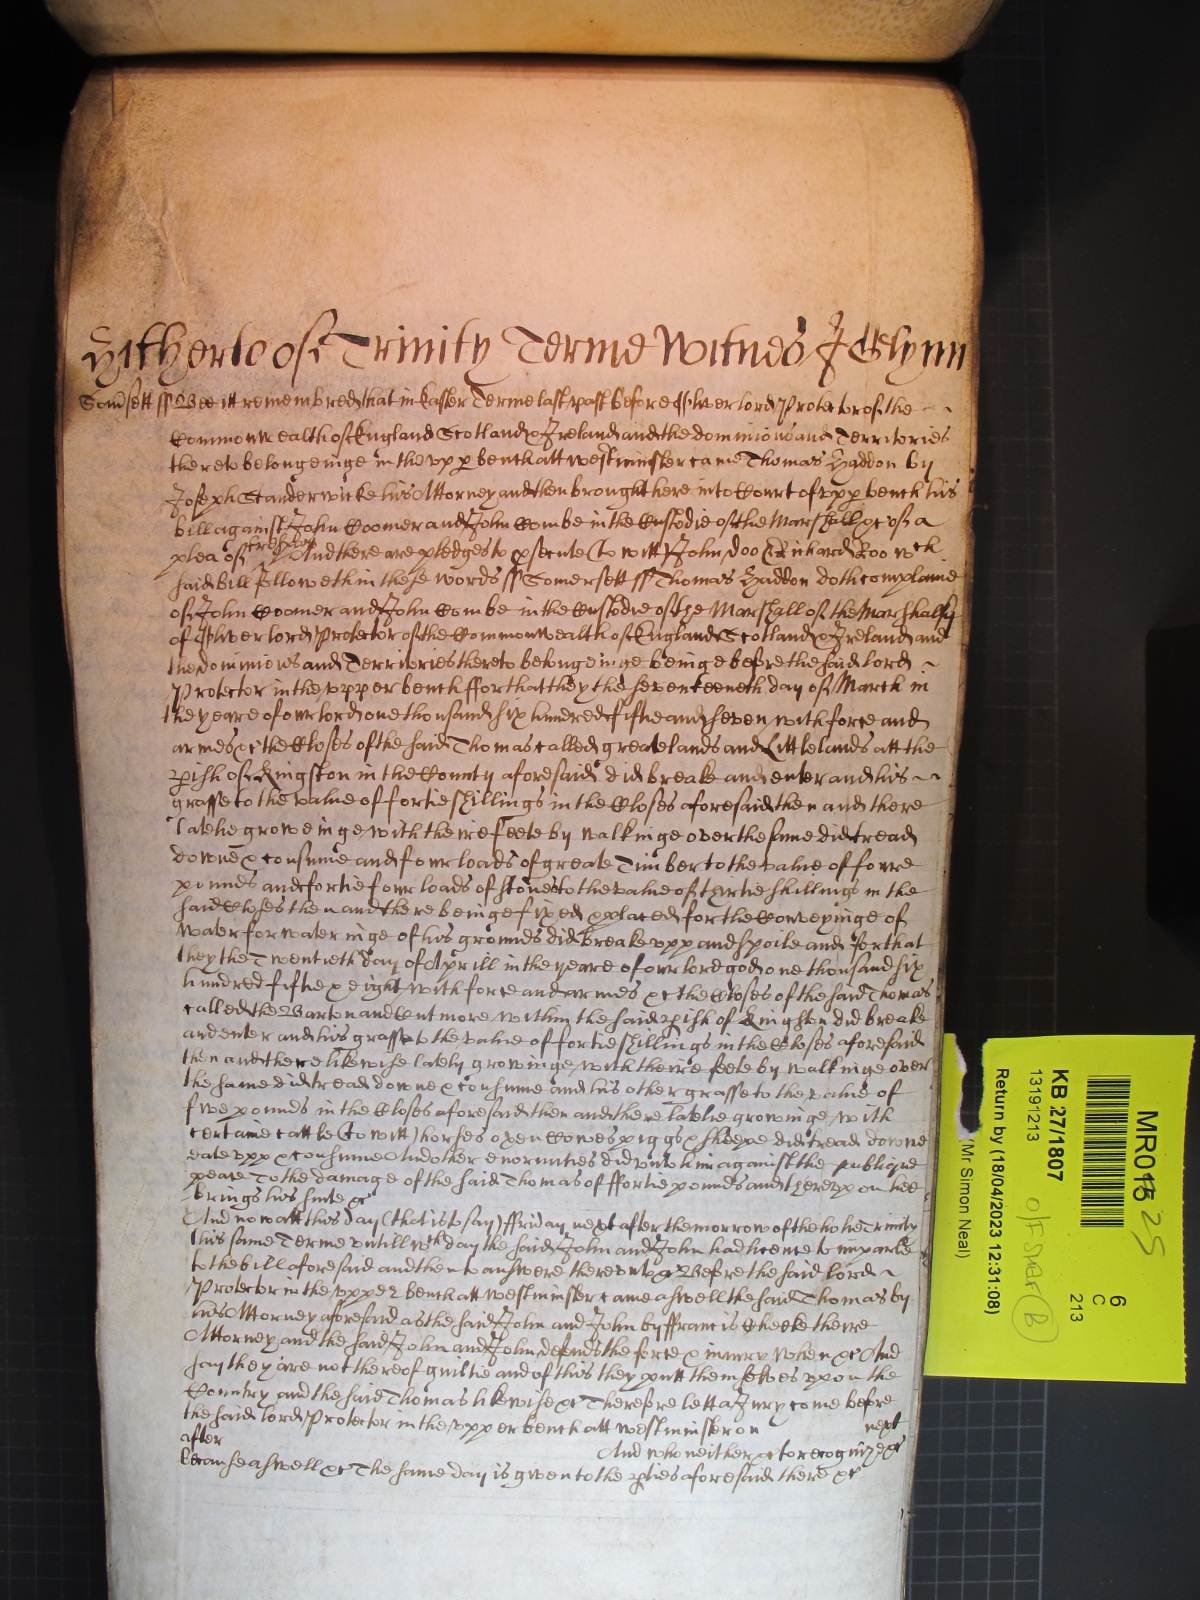 Hitherto of Trinity Terme Witnes J Glynn
Somsett ss Bee itt remembred that in Easter Terme last past before Oliver lord Protector of the
Commonwealth of England Scotland & Ireland and the dominions and Territories
thereto belongeinge in the upp bench att westminster came Thomas Haddon by
Joseph Standerwicke his Attorney and then brought here into Court of upp bench his
bill against John Coomer and John Combe in the Custodie of the Marshall &c of a
plea of trespas And there are pledges to psecute (to witt) John Doo & Richard Roo wch
said Bill followeth in these words ss Somersett ss Thomas Haddon doth complaine
of John Coomer and John Combe in the Custodie of the Marshall of the Marshalsy
of Oliver lord Protector of the Commonwealth of England Scotland & Ireland and
the dominions and Territories thereto belongeinge beinge before the said lord
Protector in the upper bench ffor that they the seventeeneth day of March in
the yeare of our lord one thousand six hundred fiftie and seven with force and
armes &c the Closes of the said Thomas called greatelands and Littlelands att the
pish of Kingston in the County aforesaid did breake and enter and his
grasse to the value of fortie shillings in the Closes aforesaid then and there
latelie groweinge with theire feete by walkinge over the same did tread
downe & consume and fowr loads of greate Timber to the value of fowre
pounds and fortie fowr loads of stones to the value of thirtie shillings in the
said Closes then and there beinge fixed & placed for the Conveyinge of
Water for wateringe of his grounds did breake upp and spoile and for that
they the Twentieth day of Aprill in the yeare of our lord god one thousand six
hundred fiftie & eight with force and armes &c the Closes of the said Thomas
called the Barton and Cutmore within the said pish of Kingston did breake
and enter and his grasse to the value of fortie shillings in the Closes aforesaid
then and there likewise lately growinge with theire feete by walkinge over
the same did tread downe & consume and his other grasse to the value of
five pounds in the Closes aforesaid then and there latelie growinge with
certaine cattle (to witt) horses oxen Cowes piggs & sheepe did tread downe
eate upp & consume And other enormities did unto him against the publique
peace To the damage of the said Thomas of ffortie pounds and thereupon hee
brings his suite &c
And now att this day (that is to say) ffriday next after the morrow of the holie Trinity
this same Terme untill wch day the said John and John had licence to imparle
to the bill aforesaid and then to answere thereunto &c Before the said lord
Protector in the upper bench att westminster came aswell the said Thomas by
his Attorney aforesaid as the said John and John by ffrancis Cheeke theire
Attorney and the said John and John defends the force & iniury when &c And
say they are not thereof guiltie and of this they putt themselves upon the
Country and the said Thomas likewise &c Therefore lett a Jury come before
the said lord Protector in the upper bench att westminster on next
after And who neither &c to recognize &c
because aswell &c The same day is given to the pties aforesaid there &c
MR015 25
6
C
213
KB 27/1807
13191213
O/F Shelf B
Return by (18/04/2023 12:31:08)
(Mr Simon Neal)